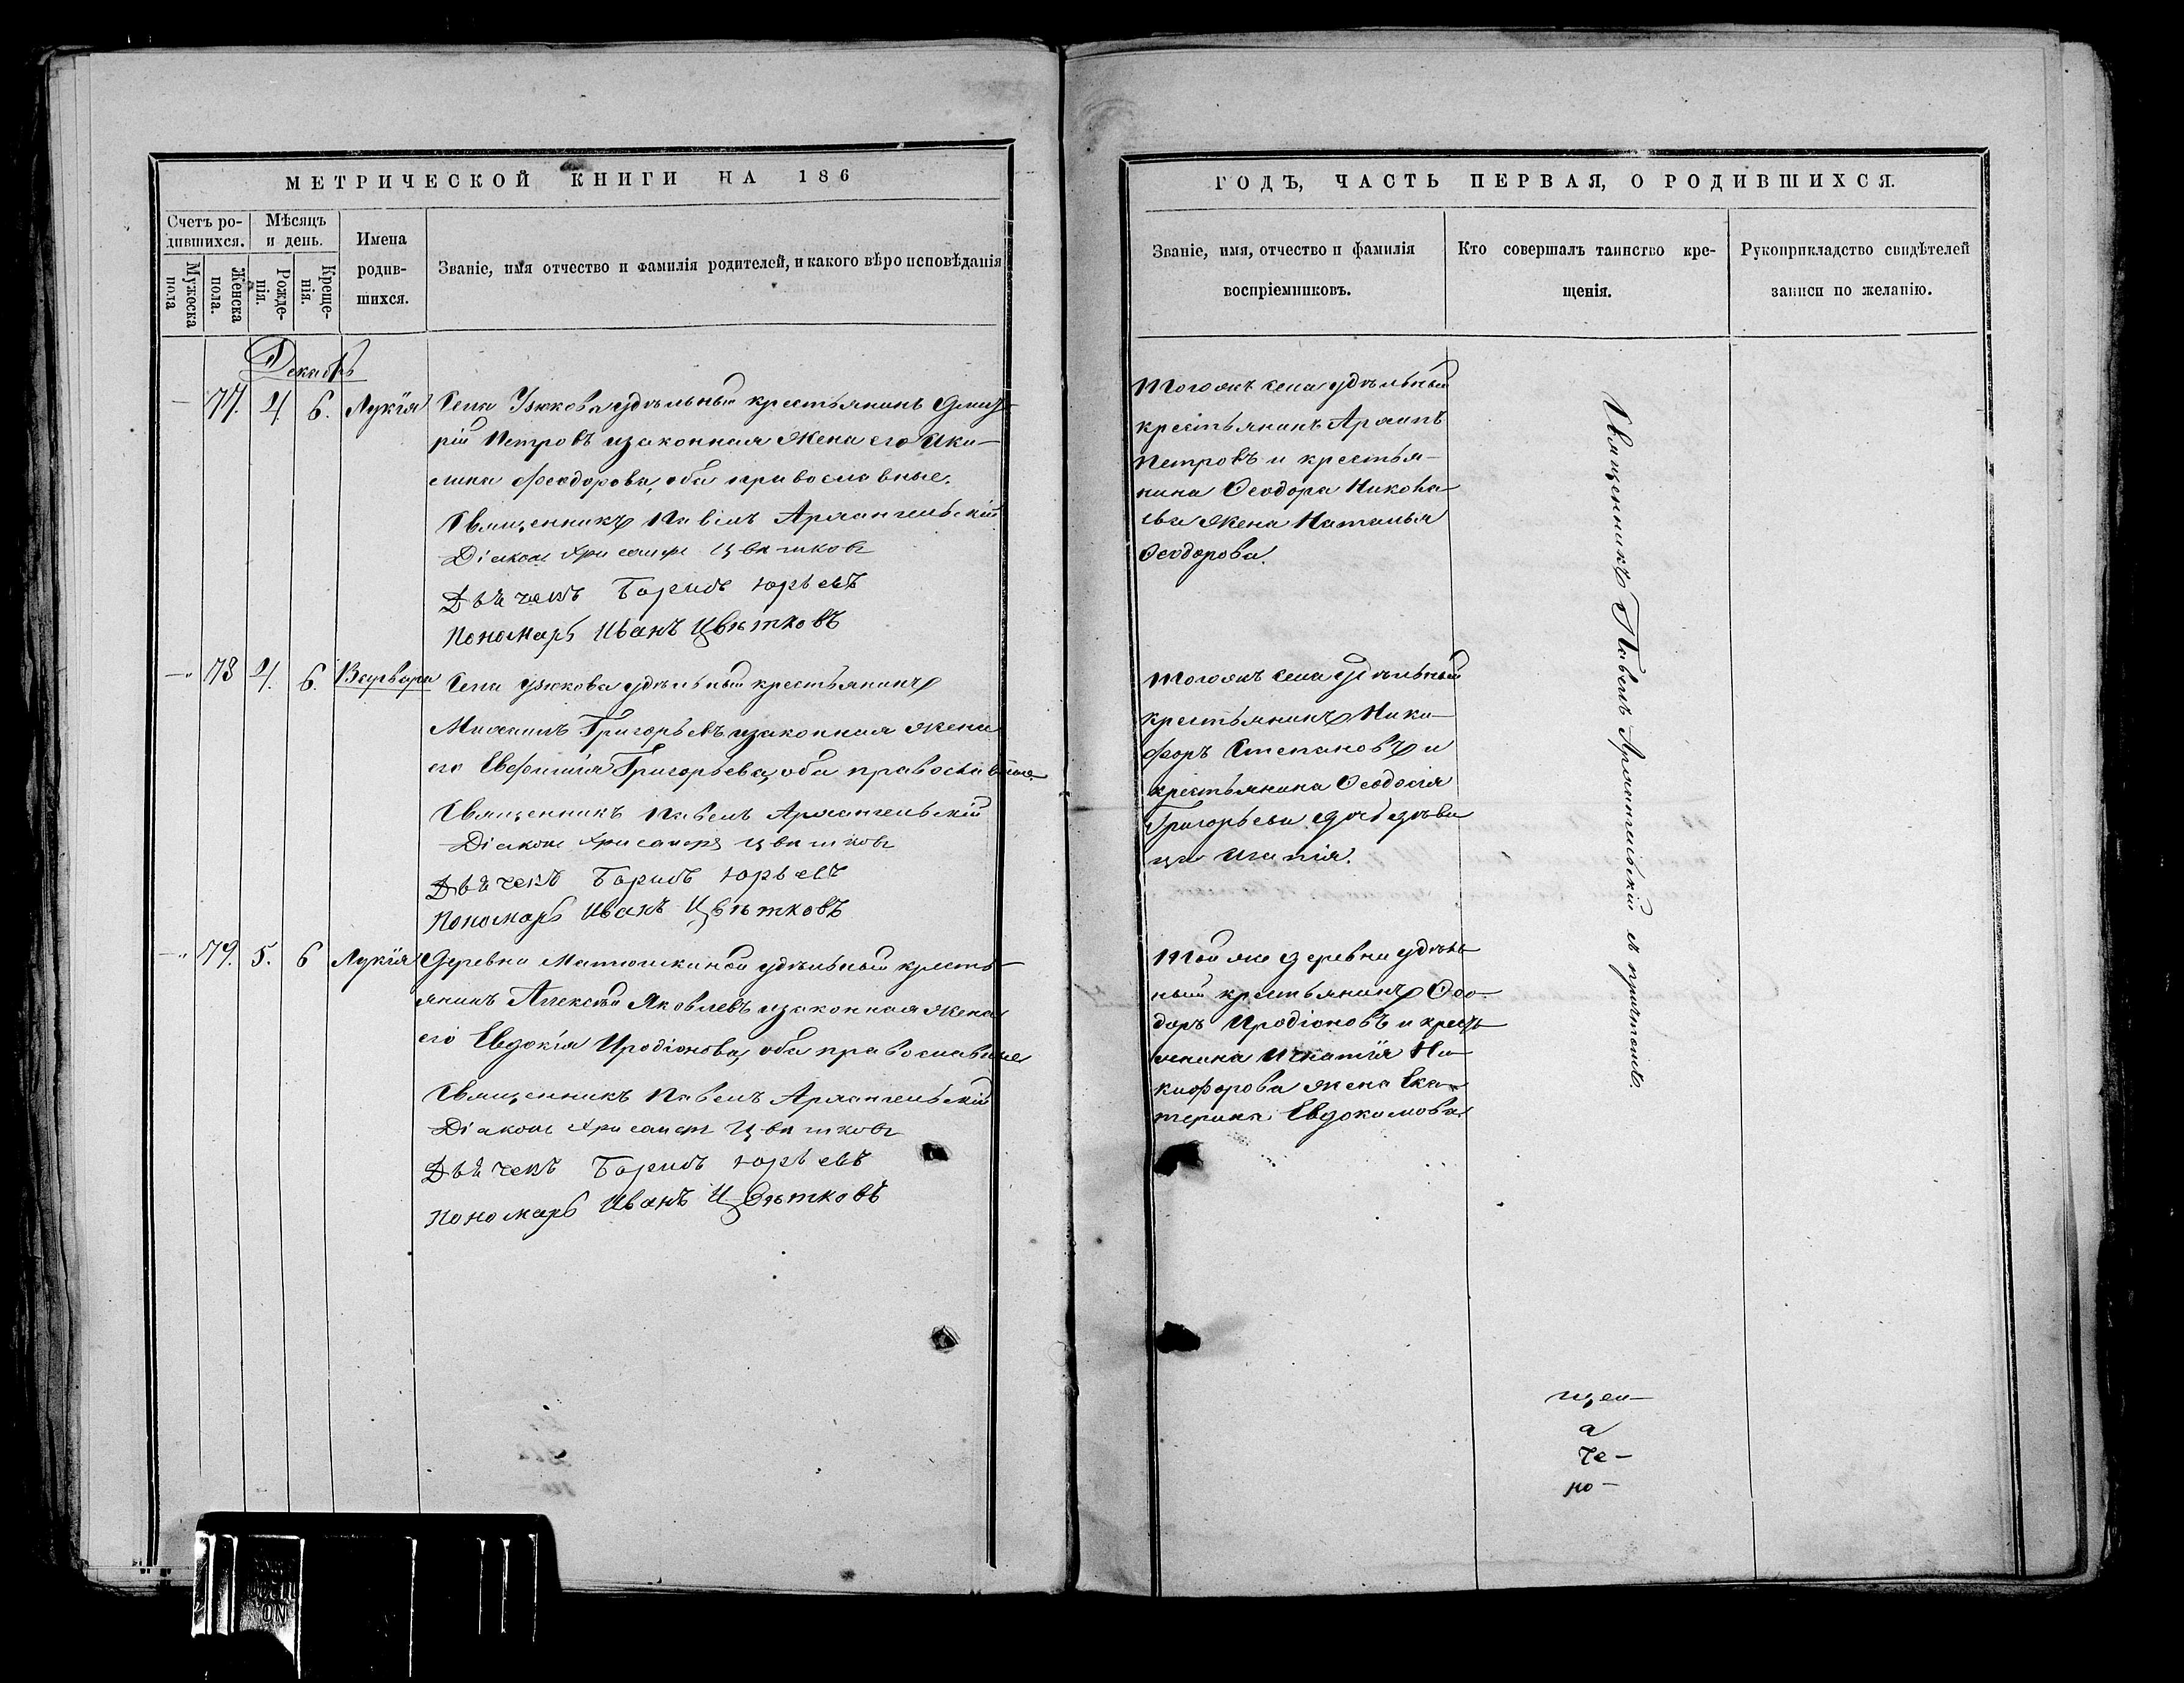 МЕТРИЧЕСКОЙ КНИГИ НА 186
Счетъ ро-
дившихся.
Мѣсяцъ
и день.
Мужеска
пола
Женска
пола.
Рожде-
нія.
Креще-
нія.
Имена
родив-
шихся.
Званіе, имя отчество и фамилія родителей, и какого вѣроисповѣданія
Декабрь
77. 4 6. Лукія Села Узюкова удѣльный крестьянинъ Дмит-
рій Петровъ и законная жена его Аки-
лина Феодорова, оба православные.
Священникъ Павелъ Архангельскій
Діаконъ Хрисанфъ Цвѣтковъ
Дьячекъ Борисъ Юрьевъ
Пономарь Иванъ Цвѣтковъ
78 4. 6. Варвара Села Узюкова удѣльный крестьянинъ
Михаилъ Григорьевъ и законная жена
его Евфимія Григорьева, оба православные
Священникъ Павелъ Архангельскій
Діаконъ Хрисанфъ Цвѣтковъ
Дьячекъ Борисъ Юрьевъ
Пономарь Иванъ Цвѣтковъ
79. 5. 6 Лукія Деревни Матюшкиной удѣльный кресть-
янинъ Алексѣй Яковлевъ и законная жена
его Евдокія Иродіонова, оба православные
Священникъ Павелъ Архангельскій
Діаконъ Хрисанфъ Цвѣтковъ
Дьячекъ Борисъ Юрьевъ
Пономарь Иванъ Цвѣтковъ
ГОДЪ, ЧАСТЬ ПЕРВАЯ, О РОДИВШИХСЯ.
Званіе, имя, отчество и фамилія
воспріемниковъ.
Кто совершалъ таинство кре-
щенія.
Рукоприкладство свидѣтелей
записи по желанію.
Тогожъ села удѣльный
крестьянинъ Архипъ
Петровъ и крестья-
нина Ѳеодора Никола-
ева жена Наталья
Ѳеодорова.
Тогожъ села удѣльный
крестьянинъ Ники-
форъ Степановъ и
крестьянина Ѳеодосія
Григорьева дочь дѣви-
ца
Той же деревни удѣль-
ный крестьянинъ Ѳео-
доръ Иродіоновъ и кресть-
янина Игнатія Ни-
кифорова жена Ека-
терина Евдокимова.
Священникъ Павелъ Архангельскій съ причтомъ.
щен-
а
че-
но-